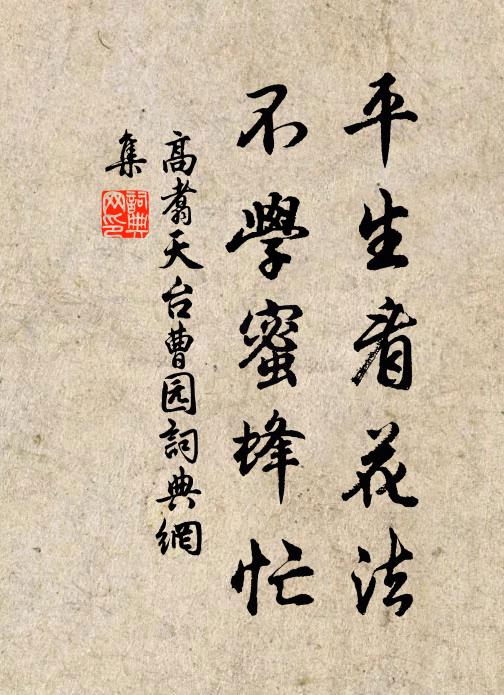 平生看花法
不學蜜蜂忙
高翥天台曹园詞典網
集
詞典
网印